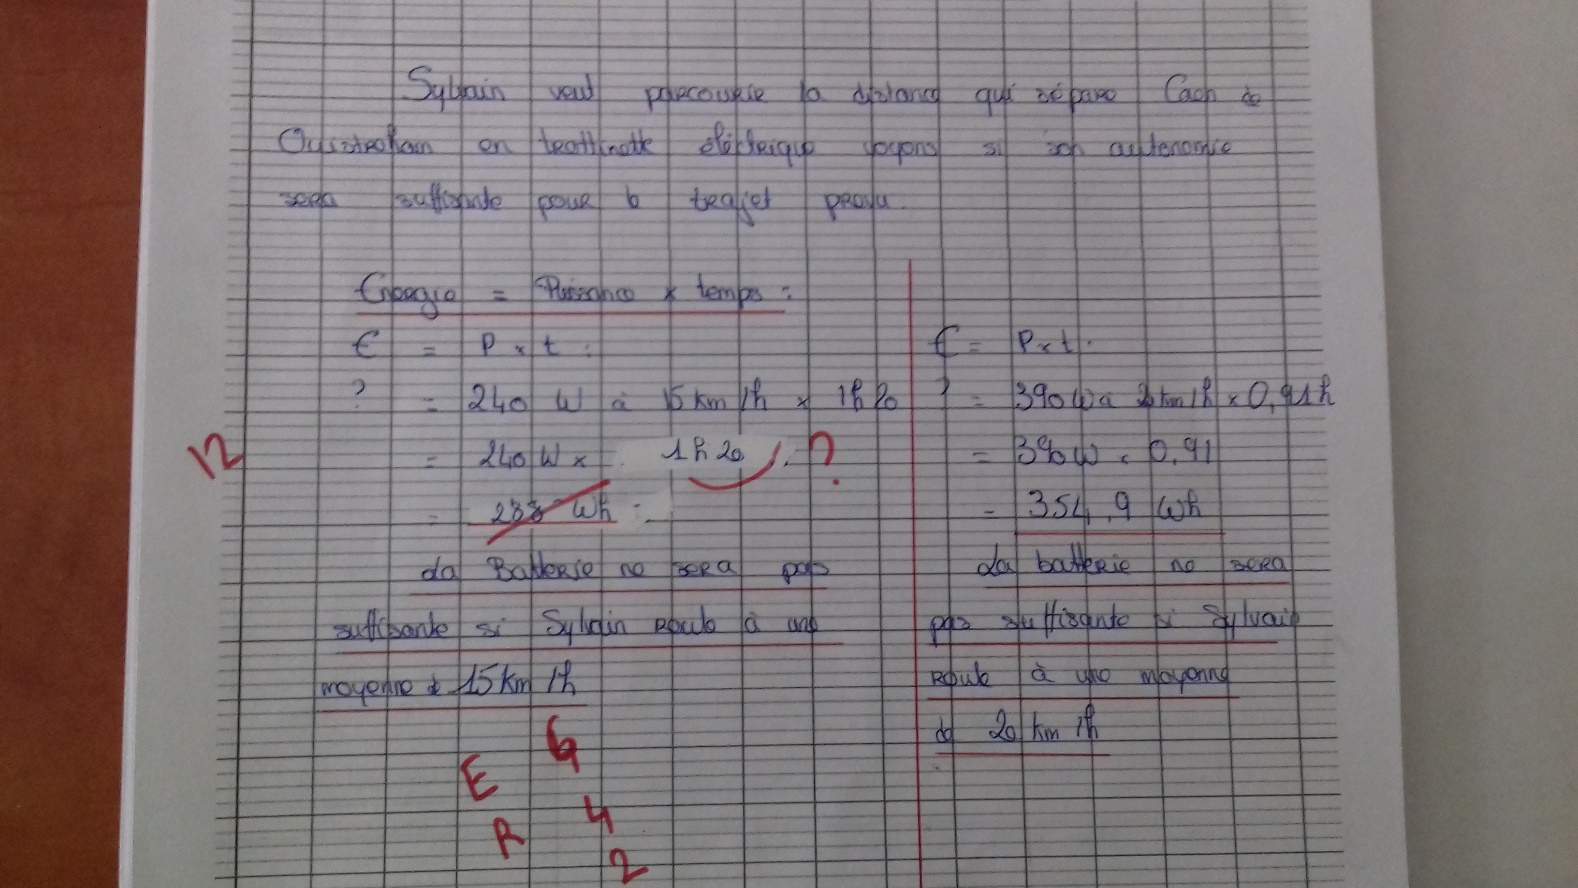 Sylvain veut parcourir la distance qui sépare Caen de
Ouistreham en trottinette éléctrique voyons si son autonomie
sera suffisante pour le trajet prévu.
Energie = Puissance x temps :
E = P x t :
? = 240 W à 15 km/h x 1h20
= 240 W x 1h20 . ?
12
= 288 Wh :
La Batterie ne sera pas
suffisante si Sylvain roule à une
moyenne de 15 km/h
E = P x t .
? = 390W à km/h x 0,91h
= 390W x 0,91
= 354,9 Wh
La batterie ne sera
pas suffisante si Sylvain
roule à une moyenne
de 20 km/h
6
E
4
R
2